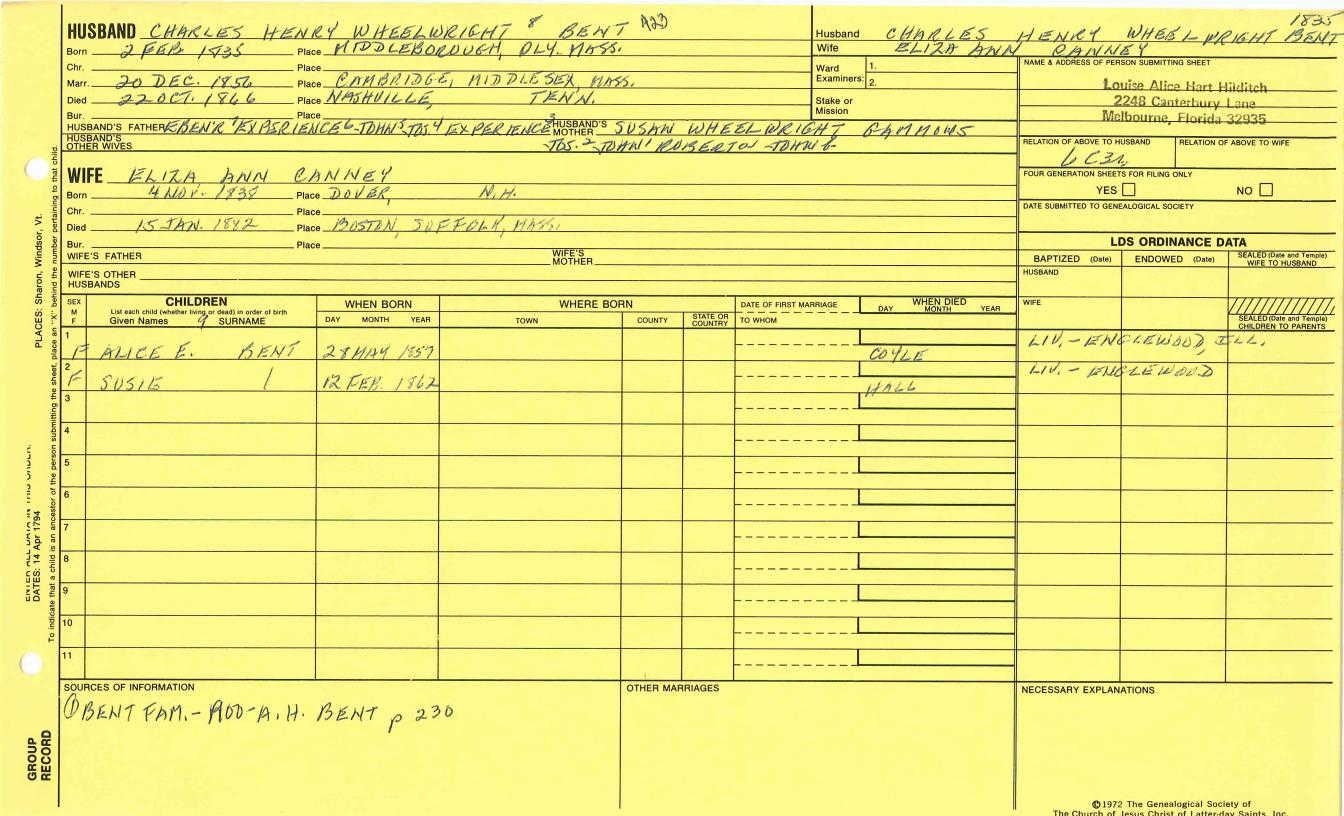 1835
HUSBAND CHARLES HENRY WHEELWRIGHT 8 BENT A23
Born 2 FEB. 1835 Place MIDDLEBOROUGH, PLY. MASS.
Chr. Place
Marr. 20 DEC. 1856 Place CAMBRIDGE, MIDDLESEX, MASS.
Died 22 OCT. 1866 Place NASHVILLE, TENN.
Bur. Place
HUSBAND'S FATHER EBEN'R 7 EXPERIENCE 6 JOHN 5 JOS. 4 EXPERIENCE 3 HUSBAND'S MOTHER SUSAN WHEELWRIGHT GAMMONS
HUSBAND'S OTHER WIVES JOS. 2 JOHN 1 ROBERT JOHN
Husband CHARLES HENRY WHEELWRIGHT BENT
Wife ELIZA ANN CANNEY
Ward 1.
Examiners: 2.
Stake or
Mission
NAME & ADDRESS OF PERSON SUBMITTING SHEET
Louise Alice Hart Hilditch
2248 Canterbury Lane
Melbourne, Florida 32935
RELATION OF ABOVE TO HUSBAND RELATION OF ABOVE TO WIFE
6 C3R
FOUR GENERATION SHEETS FOR FILING ONLY
YES NO
DATE SUBMITTED TO GENEALOGICAL SOCIETY
WIFE ELIZA ANN CANNEY
Born 4 NOV. 1838 Place DOVER, N.H.
Chr. Place
Died 15 JAN. 1892 Place BOSTON, SUFFOLK, MASS.
Bur. Place
WIFE'S FATHER WIFE'S MOTHER
WIFE'S OTHER HUSBANDS
LDS ORDINANCE DATA
BAPTIZED (Date) ENDOWED (Date) SEALED (Date and Temple) WIFE TO HUSBAND
HUSBAND
WIFE
SEALED (Date and Temple) CHILDREN TO PARENTS
SEX M F CHILDREN WHEN BORN WHERE BORN DATE OF FIRST MARRIAGE WHEN DIED
List each child (whether living or dead) in order of birth
Given Names 9 SURNAME DAY MONTH YEAR TOWN COUNTY STATE OR COUNTRY TO WHOM DAY MONTH YEAR
1 F ALICE E. BENT 28 MAY 1857 COYLE LIV. - ENGLEWOOD, ILL.
2 F SUSIE / 12 FEB. 1862 HALL LIV. - ENGLEWOOD
3
4
5
6
7
8
9
10
11
SOURCES OF INFORMATION OTHER MARRIAGES NECESSARY EXPLANATIONS
① BENT FAM. - 1900 - A.H. BENT p 230
©1972 The Genealogical Society of
The Church of Jesus Christ of Latter-day Saints, Inc.
PLACES: Sharon, Windsor, Vt.
ENTER ALL DATA IN THIS ORDER:
DATES: 14 Apr 1794
To indicate that a child is an ancestor of the person submitting the sheet, place an "X" behind the number pertaining to that child.
GROUP
RECORD